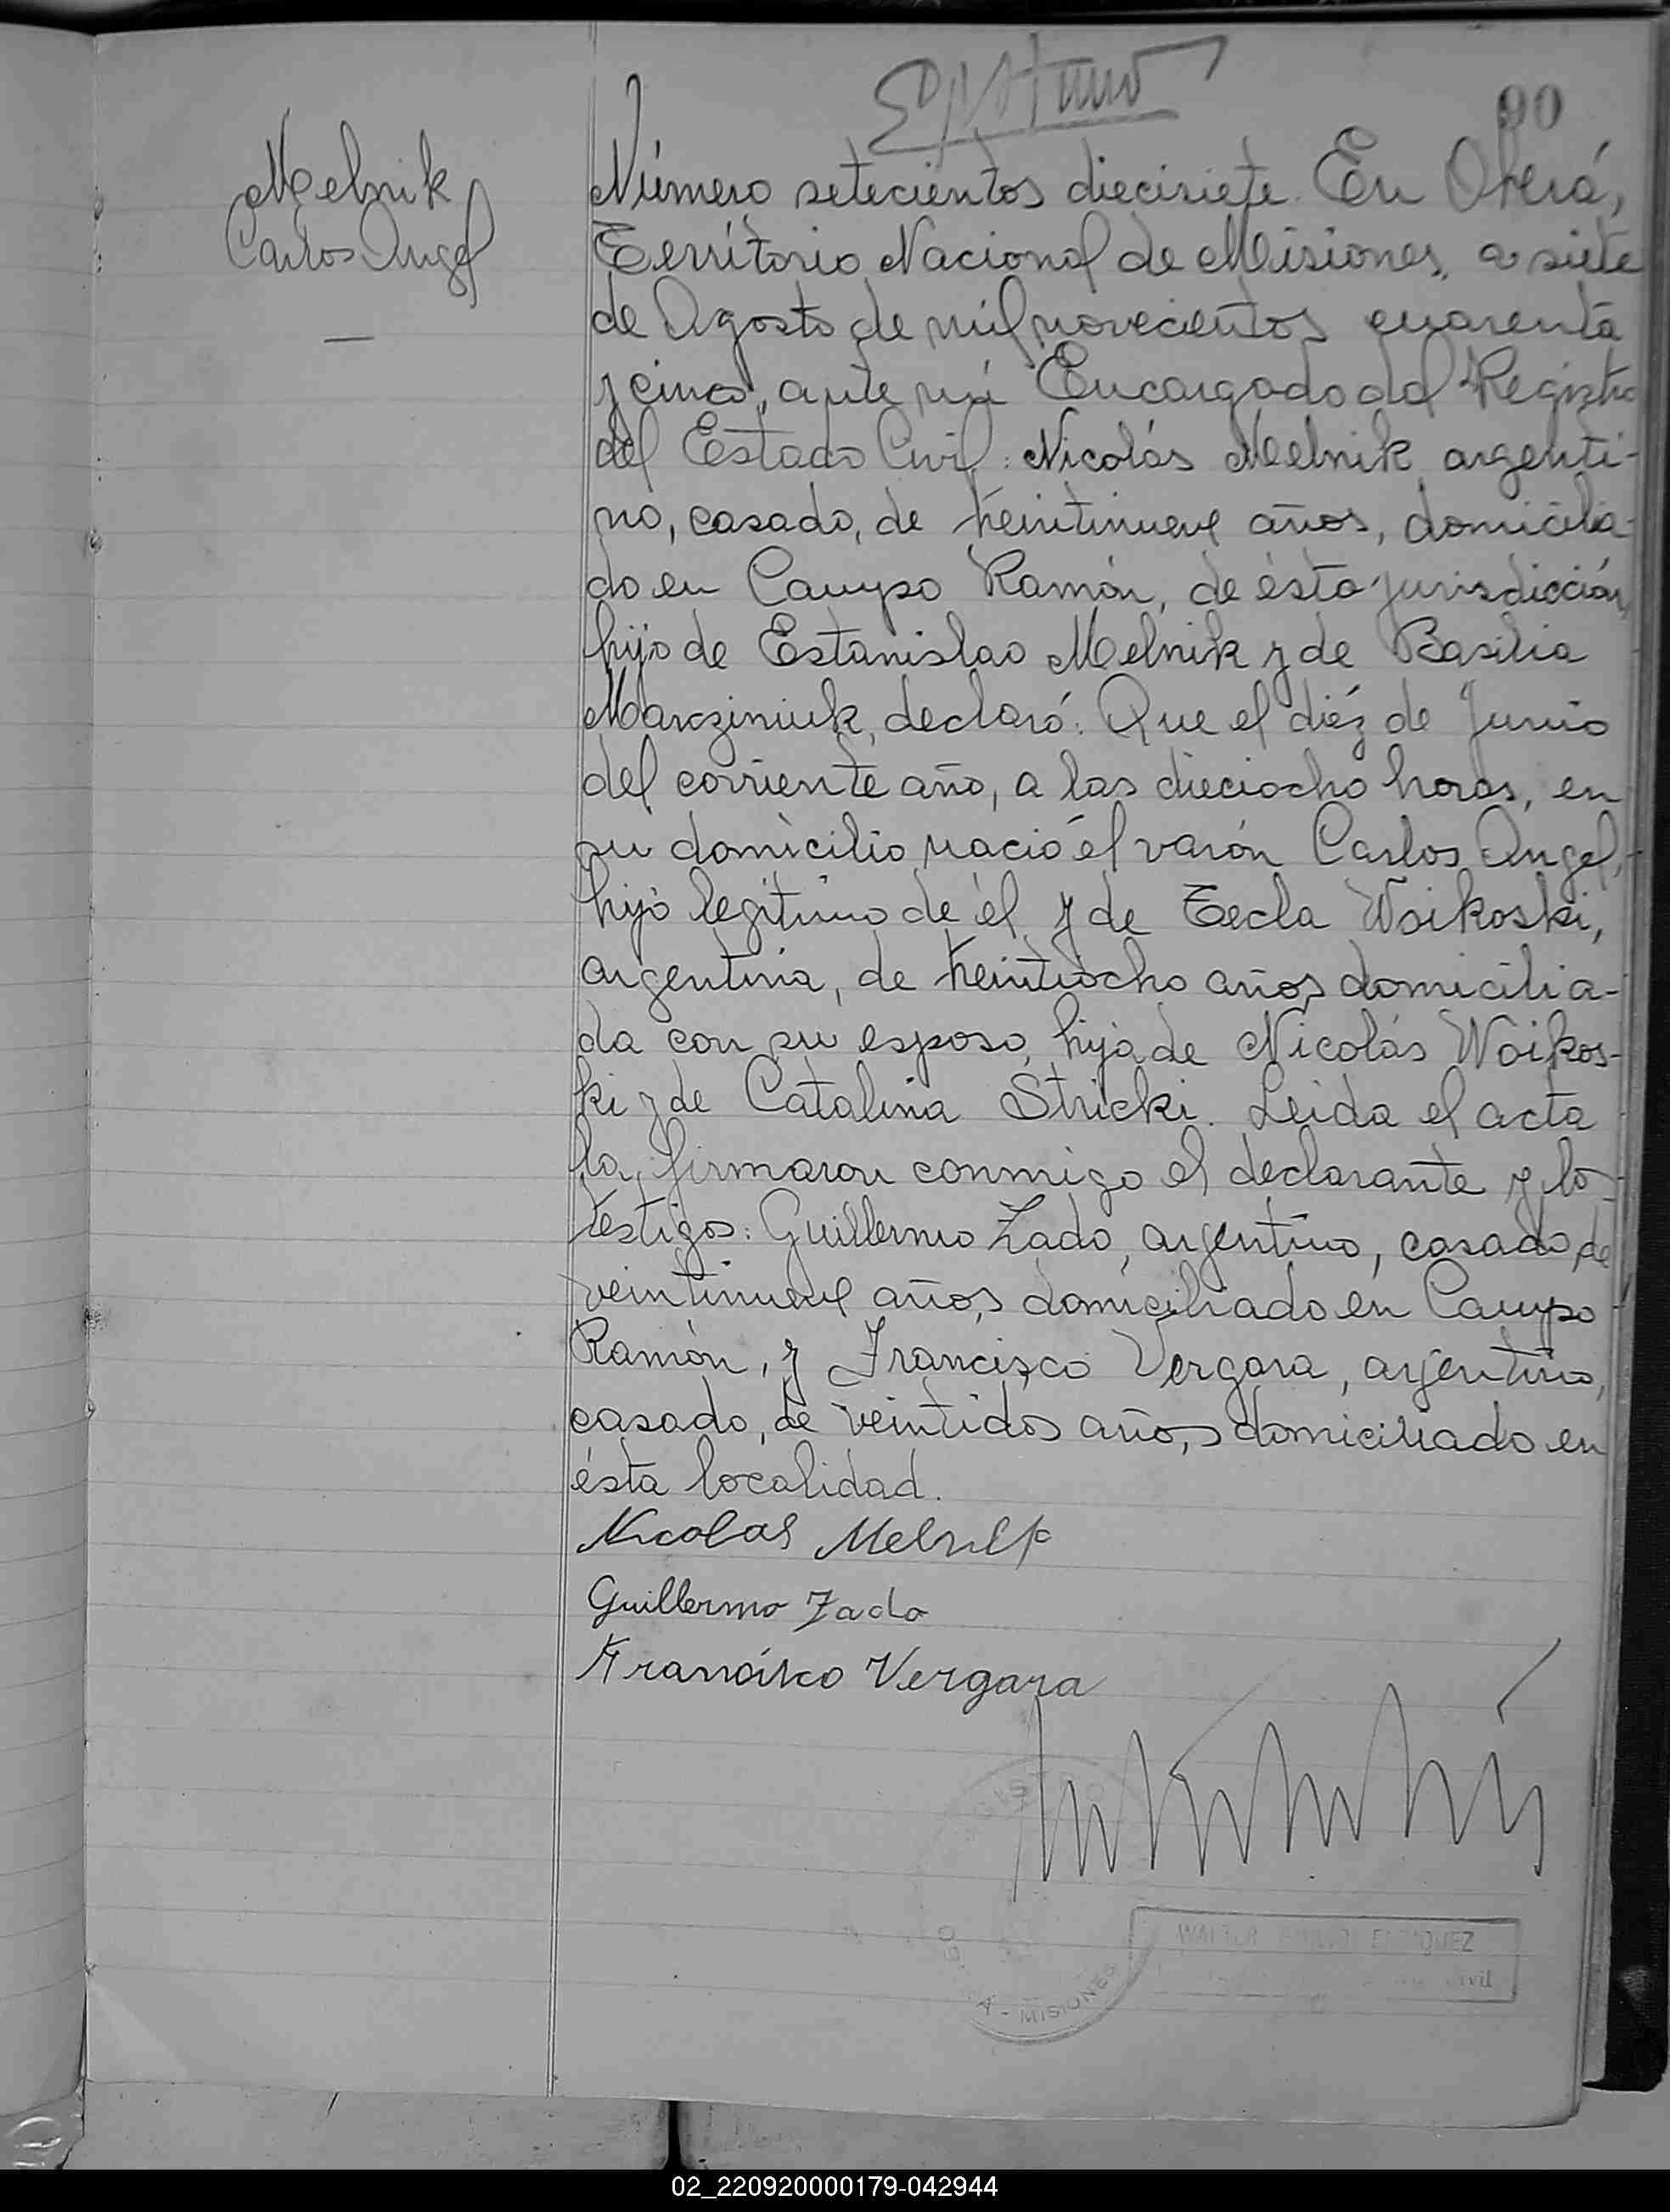 90
Melnik
Carlos Angel
Número setecientos diecisiete. En Oberá,
Territorio Nacional de Misiones, a siete
de Agosto de mil novecientos cuarenta
y cinco, ante mí Encargado del Registro
del Estado Civil: Nicolás Melnik, argenti-
no, casado, de treintinueve años, domicilia-
do en Campo Ramón, de ésta jurisdicción,
hijo de Estanislao Melnik y de Basilia
Marziniuk, declaró: Que el diéz de Junio
del corriente año, a las dieciocho horas, en
su domicilio nació el varón Carlos Angel,
hijo legítimo de él y de Tecla Woikoski,
argentina, de treintiocho años, domicilia-
da con su esposo, hija de Nicolás Woikos-
ki y de Catalina Stricki. Leida el acta
la firmaron conmigo el declarante y los
testigos: Guillermo Zado, argentino, casado, de
veintinueve años, domiciliado en Campo
Ramón, y Francisco Vergara, argentino,
casado, de veintidós años, domiciliado en
ésta localidad.
Nicolas Melnik
Guillermo Zado
Francisco Vergara
MISIONES
WALTER
02_220920000179-042944